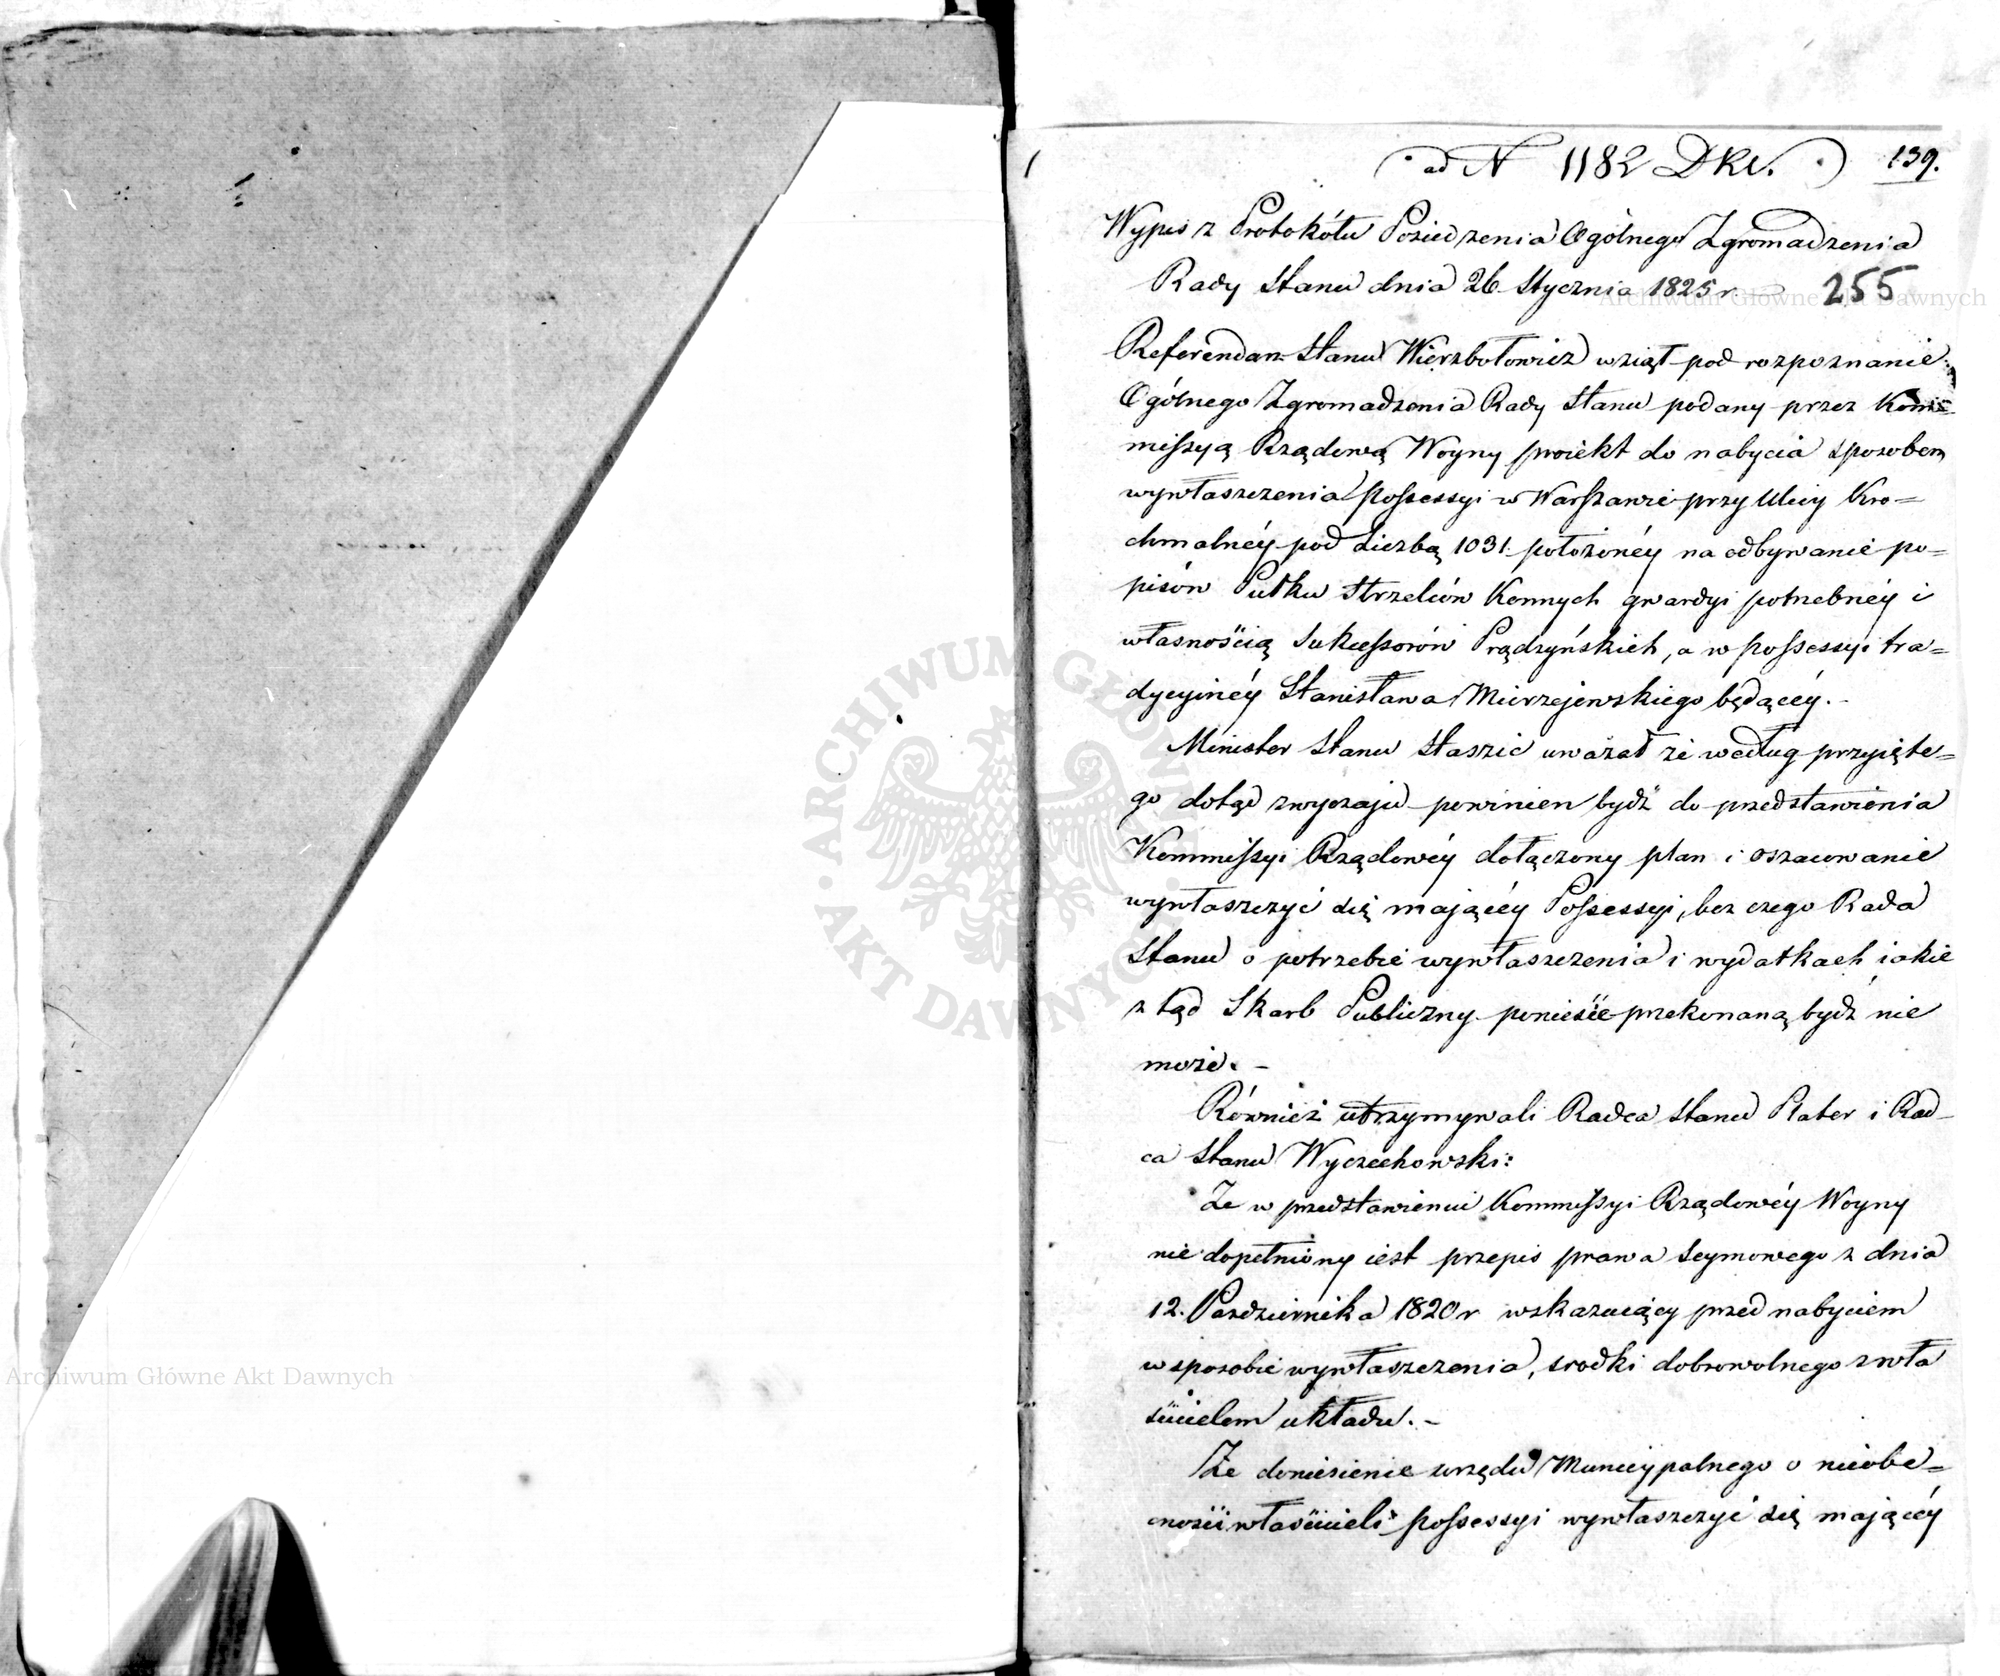 (ad N 1182 DKW.) 139.
Wypis z Protokółu Posiedzenia Ogólnego Zgromadzenia
Rady Stanu dnia 26 Stycznia 1825 r. 255
Referendarz Stanu Wierzbołowicz wziął pod rozpoznanie
Ogólnego Zgromadzenia Rady Stanu podany przez Kom=
missyą Rządową Woyny proiekt do nabycia sposobem
wywłaszczenia possessyi w Warszawie przy Ulicy Kro=
chmalnéy pod Liczbą 1031. położonéy na odbywanie po=
pisów Pułku Strzelców Konnych gwardyi potrzebnéy i
własnością Sukcessorów Prądzyńskich, a w possessyi tra=
dycyinéy Stanisława Mierzejewskiego będącéy. -
Minister Stanu Staszic uważał że według przyięte=
go dotąd zwyczaju powinien bydź do przedstawienia
Kommissyi Rządowéy dołączony plan i oszacowanie
wywłaszczyć się mającéy Possessyi, bez czego Rada
Stanu o potrzebie wywłaszczenia i wydatkach iakie
ztąd Skarb Publiczny poniesie przekonaną bydź nie
może. -
Również utrzymywali Radca Stanu Plater i Rad-
ca Stanu Wyczechowski:
Że w przedstawieniu Kommissyi Rządowéy Woyny
nie dopełniony iest przepis prawa Seymowego z dnia
12. Pazdziernika 1820 r wskazuiący przed nabyciem
w sposobie wywłaszczenia, srodki dobrowolnego z wła
ścicielem układu. -
Że doniesienie urzędu Municypalnego o nieobe=
cności właścicieli possessyi wywłaszczyć się mającéy
ARCHIWUM GŁÓWNE AKT DAWNYCH
Archiwum Główne Akt Dawnych
Archiwum Główne Akt Dawnych